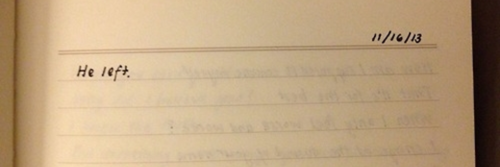 11/16/13
He left.